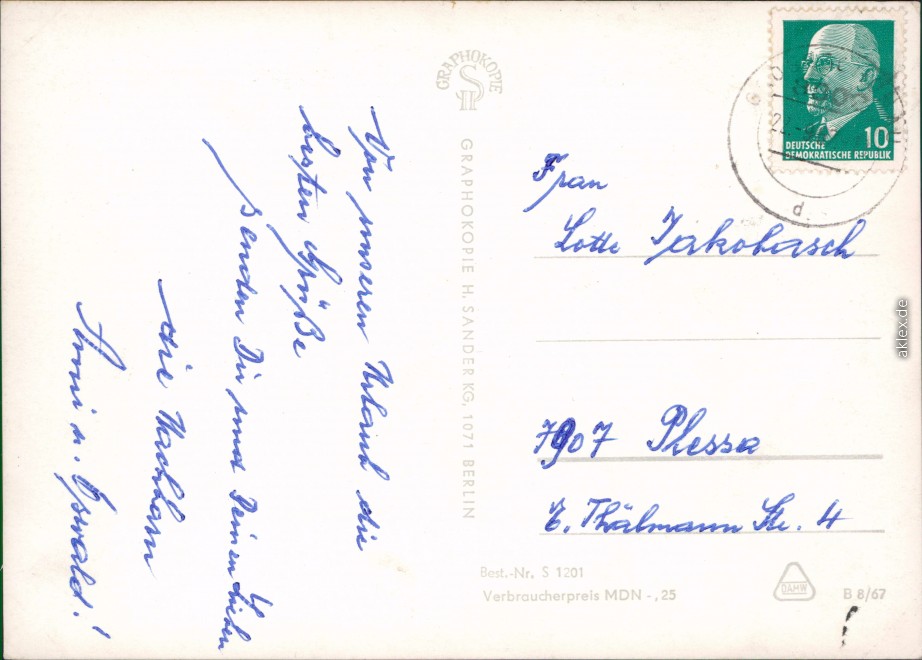 Von unseren Urlaub die
besten Grüße
senden Dir und Deinen Lieben
die Nachbarn
Anni u. Oswald!
GRAPHOKOPIE
GRAPHOKOPIE H. SANDER KG, 1071 BERLIN
10
DEUTSCHE
DEMOKRATISCHE REPUBLIK
d
Frau
Lotte Jakobasch
7907 Plessa
E. Thälmann Str. 4
Best.-Nr. S 1201
Verbraucherpreis MDN -,25
DAHW
B 8/67
aklex.de